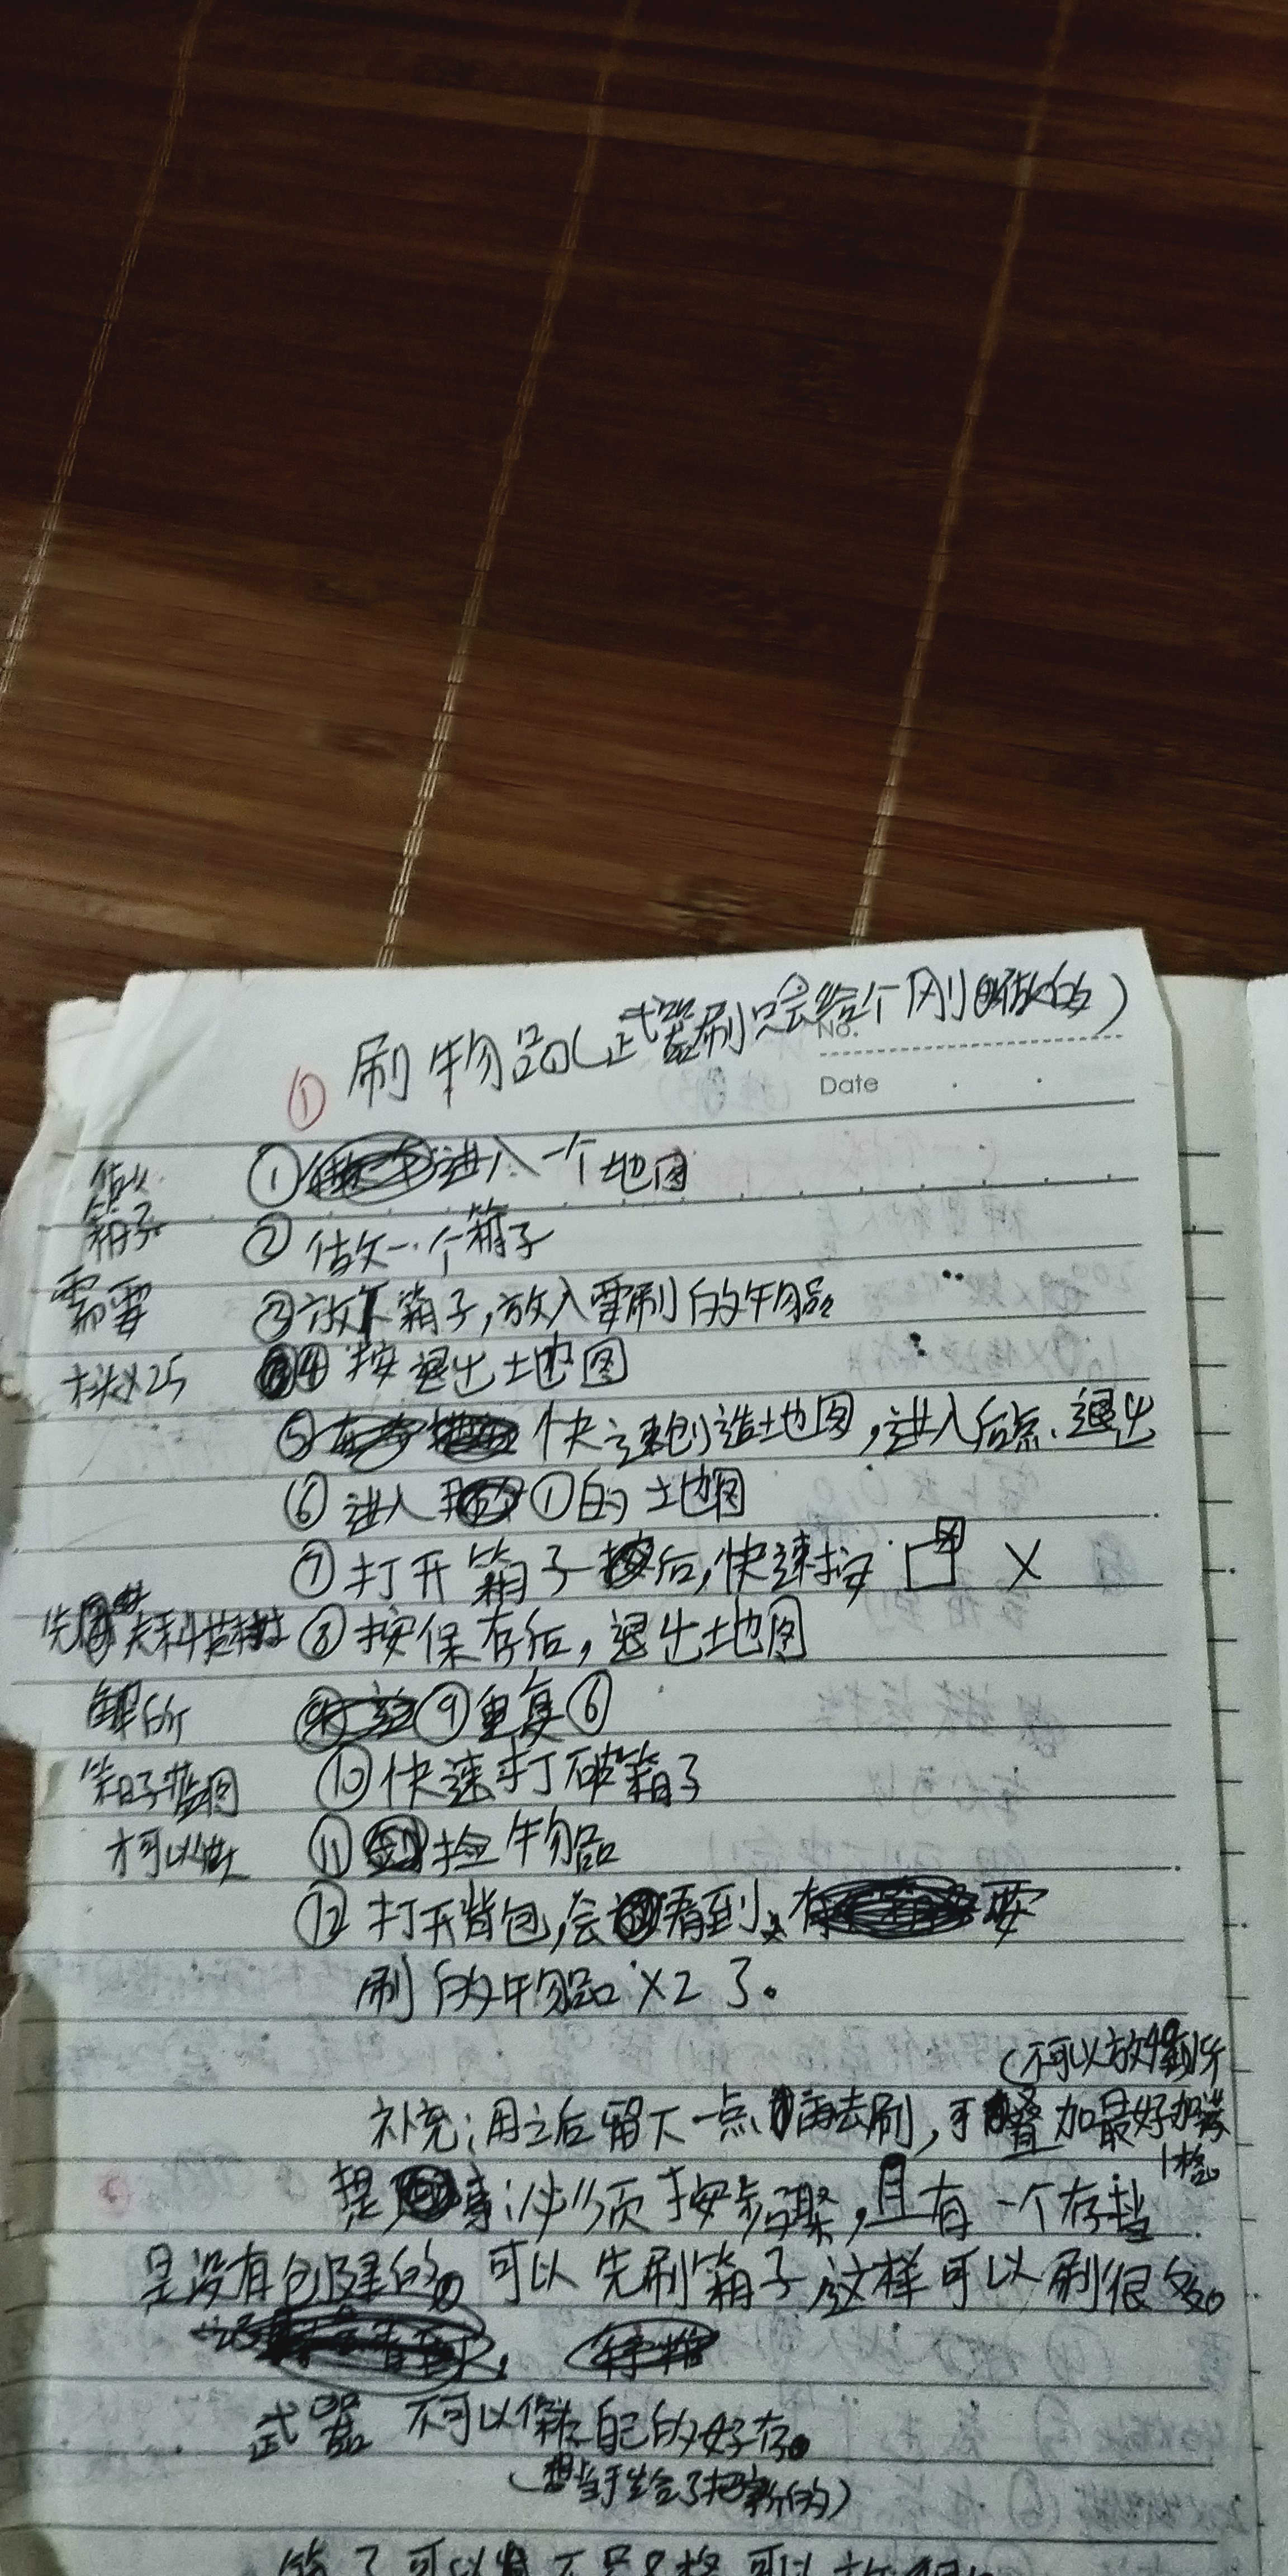 ① 刷物品(武器刷只会给个刚做的)
No.
Date
做
箱子
需要
木头x25
先用
解所
箱子蓝图
才可以做
①进入一个地图
②做一个箱子
③放下箱子,放入要刷的物品
④按退出地图
⑤快速创造地图,进入后点退出
⑥进入①的地图
⑦打开箱子后,快速按 X
⑧按保存后,退出地图
⑨重复⑥
⑩快速打破箱子
⑪捡物品
⑫打开背包,会看到,有要
刷的物品x2了。
(不可以放
补充:用之后留下一点再去刷,可叠加最好加满
1格
必须按步骤,且有一个存档
是没有创建的。可以先刷箱子,这样可以刷很多。
武器不可以保存自己的好存。
(相当于给了把新的)